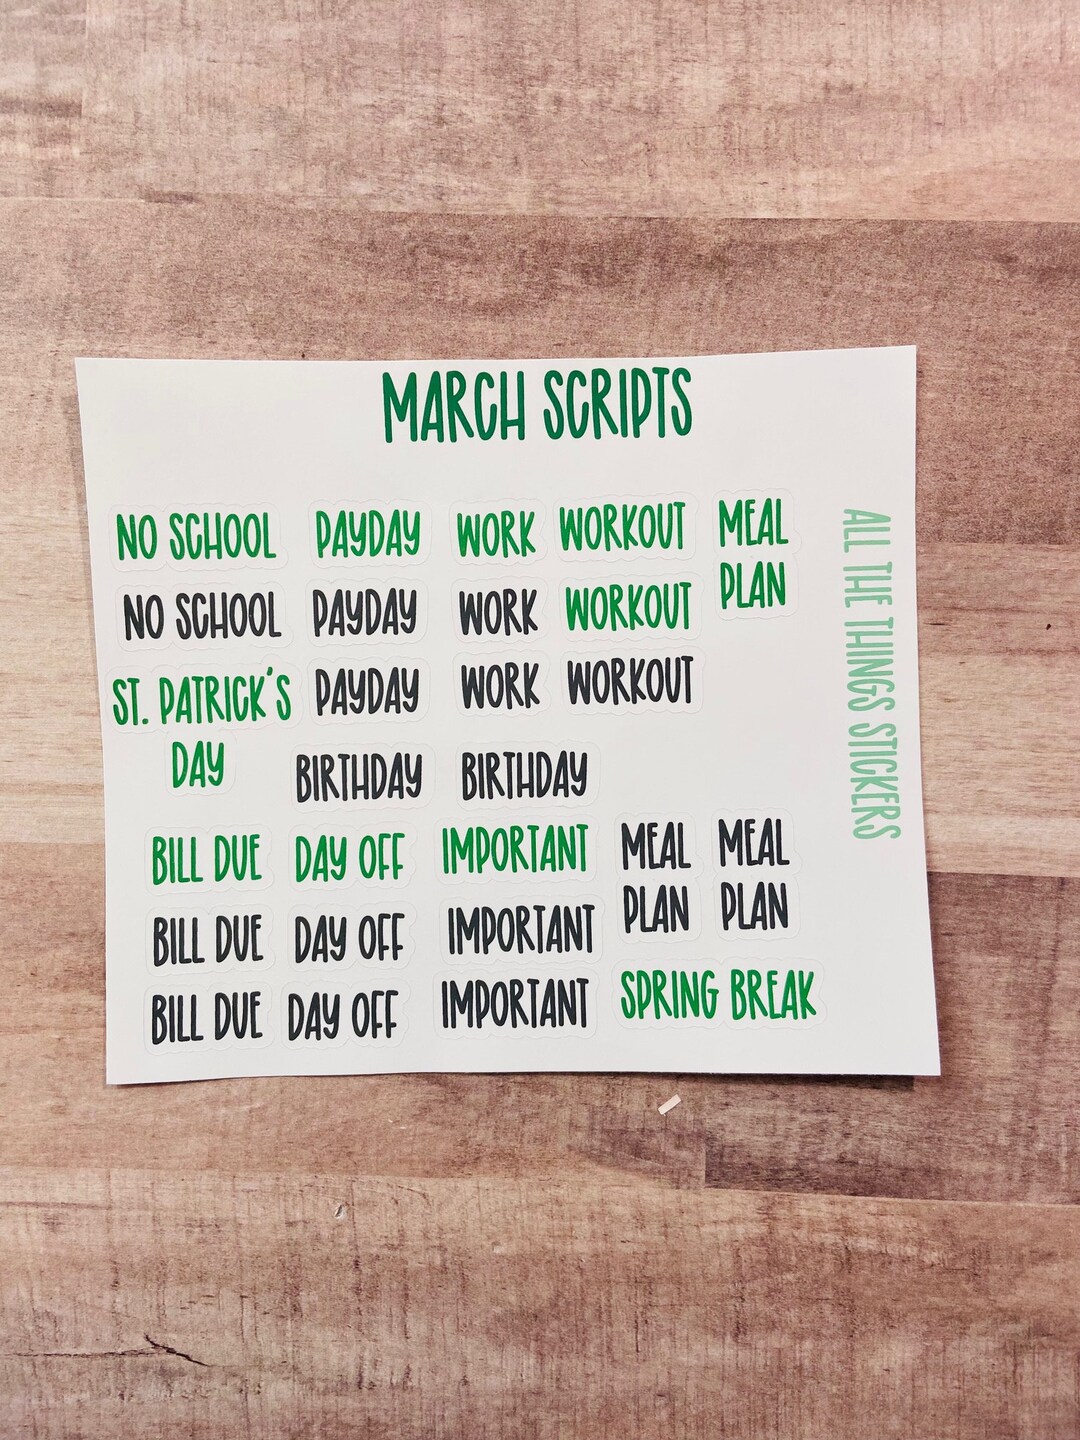 MARCH SCRIPTS
NO SCHOOL PAYDAY WORK WORKOUT MEAL PLAN
NO SCHOOL PAYDAY WORK WORKOUT
ST. PATRICK'S DAY PAYDAY WORK WORKOUT
BIRTHDAY BIRTHDAY
BILL DUE DAY OFF IMPORTANT MEAL PLAN MEAL PLAN
BILL DUE DAY OFF IMPORTANT
BILL DUE DAY OFF IMPORTANT SPRING BREAK
ALL THE THINGS STICKERS